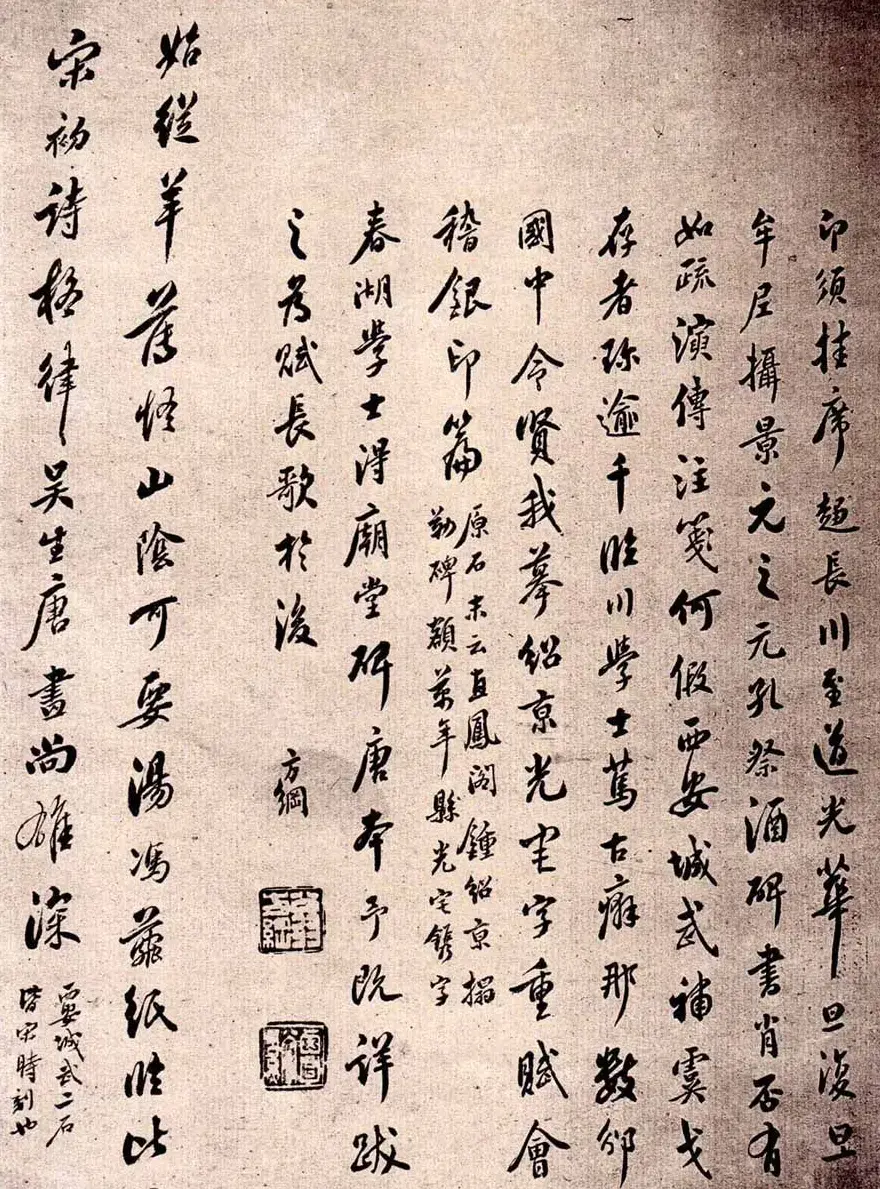 印須挂席超長川至道光華旦復旦
牟尼攝景元之元孔祭酒碑書肖否有
如疏演傳注箋何假西安城武補虞戈
存者珎逾千臨川學士篤古癖那數邠
國中令賢我摹紹京光宅字重賦會
稽銀印篇
原石末云直鳳閣鍾紹京搨
勒碑額萬年縣光宅鐫字
春湖學士得廟堂碑唐本予既詳跋
之為賦長歌於後
方綱
始從羊薄悟山陰可要湯馮繭紙臨比
宋初詩格律〻吴生唐畫尚雄深
西安城武二石
皆宋時刻也